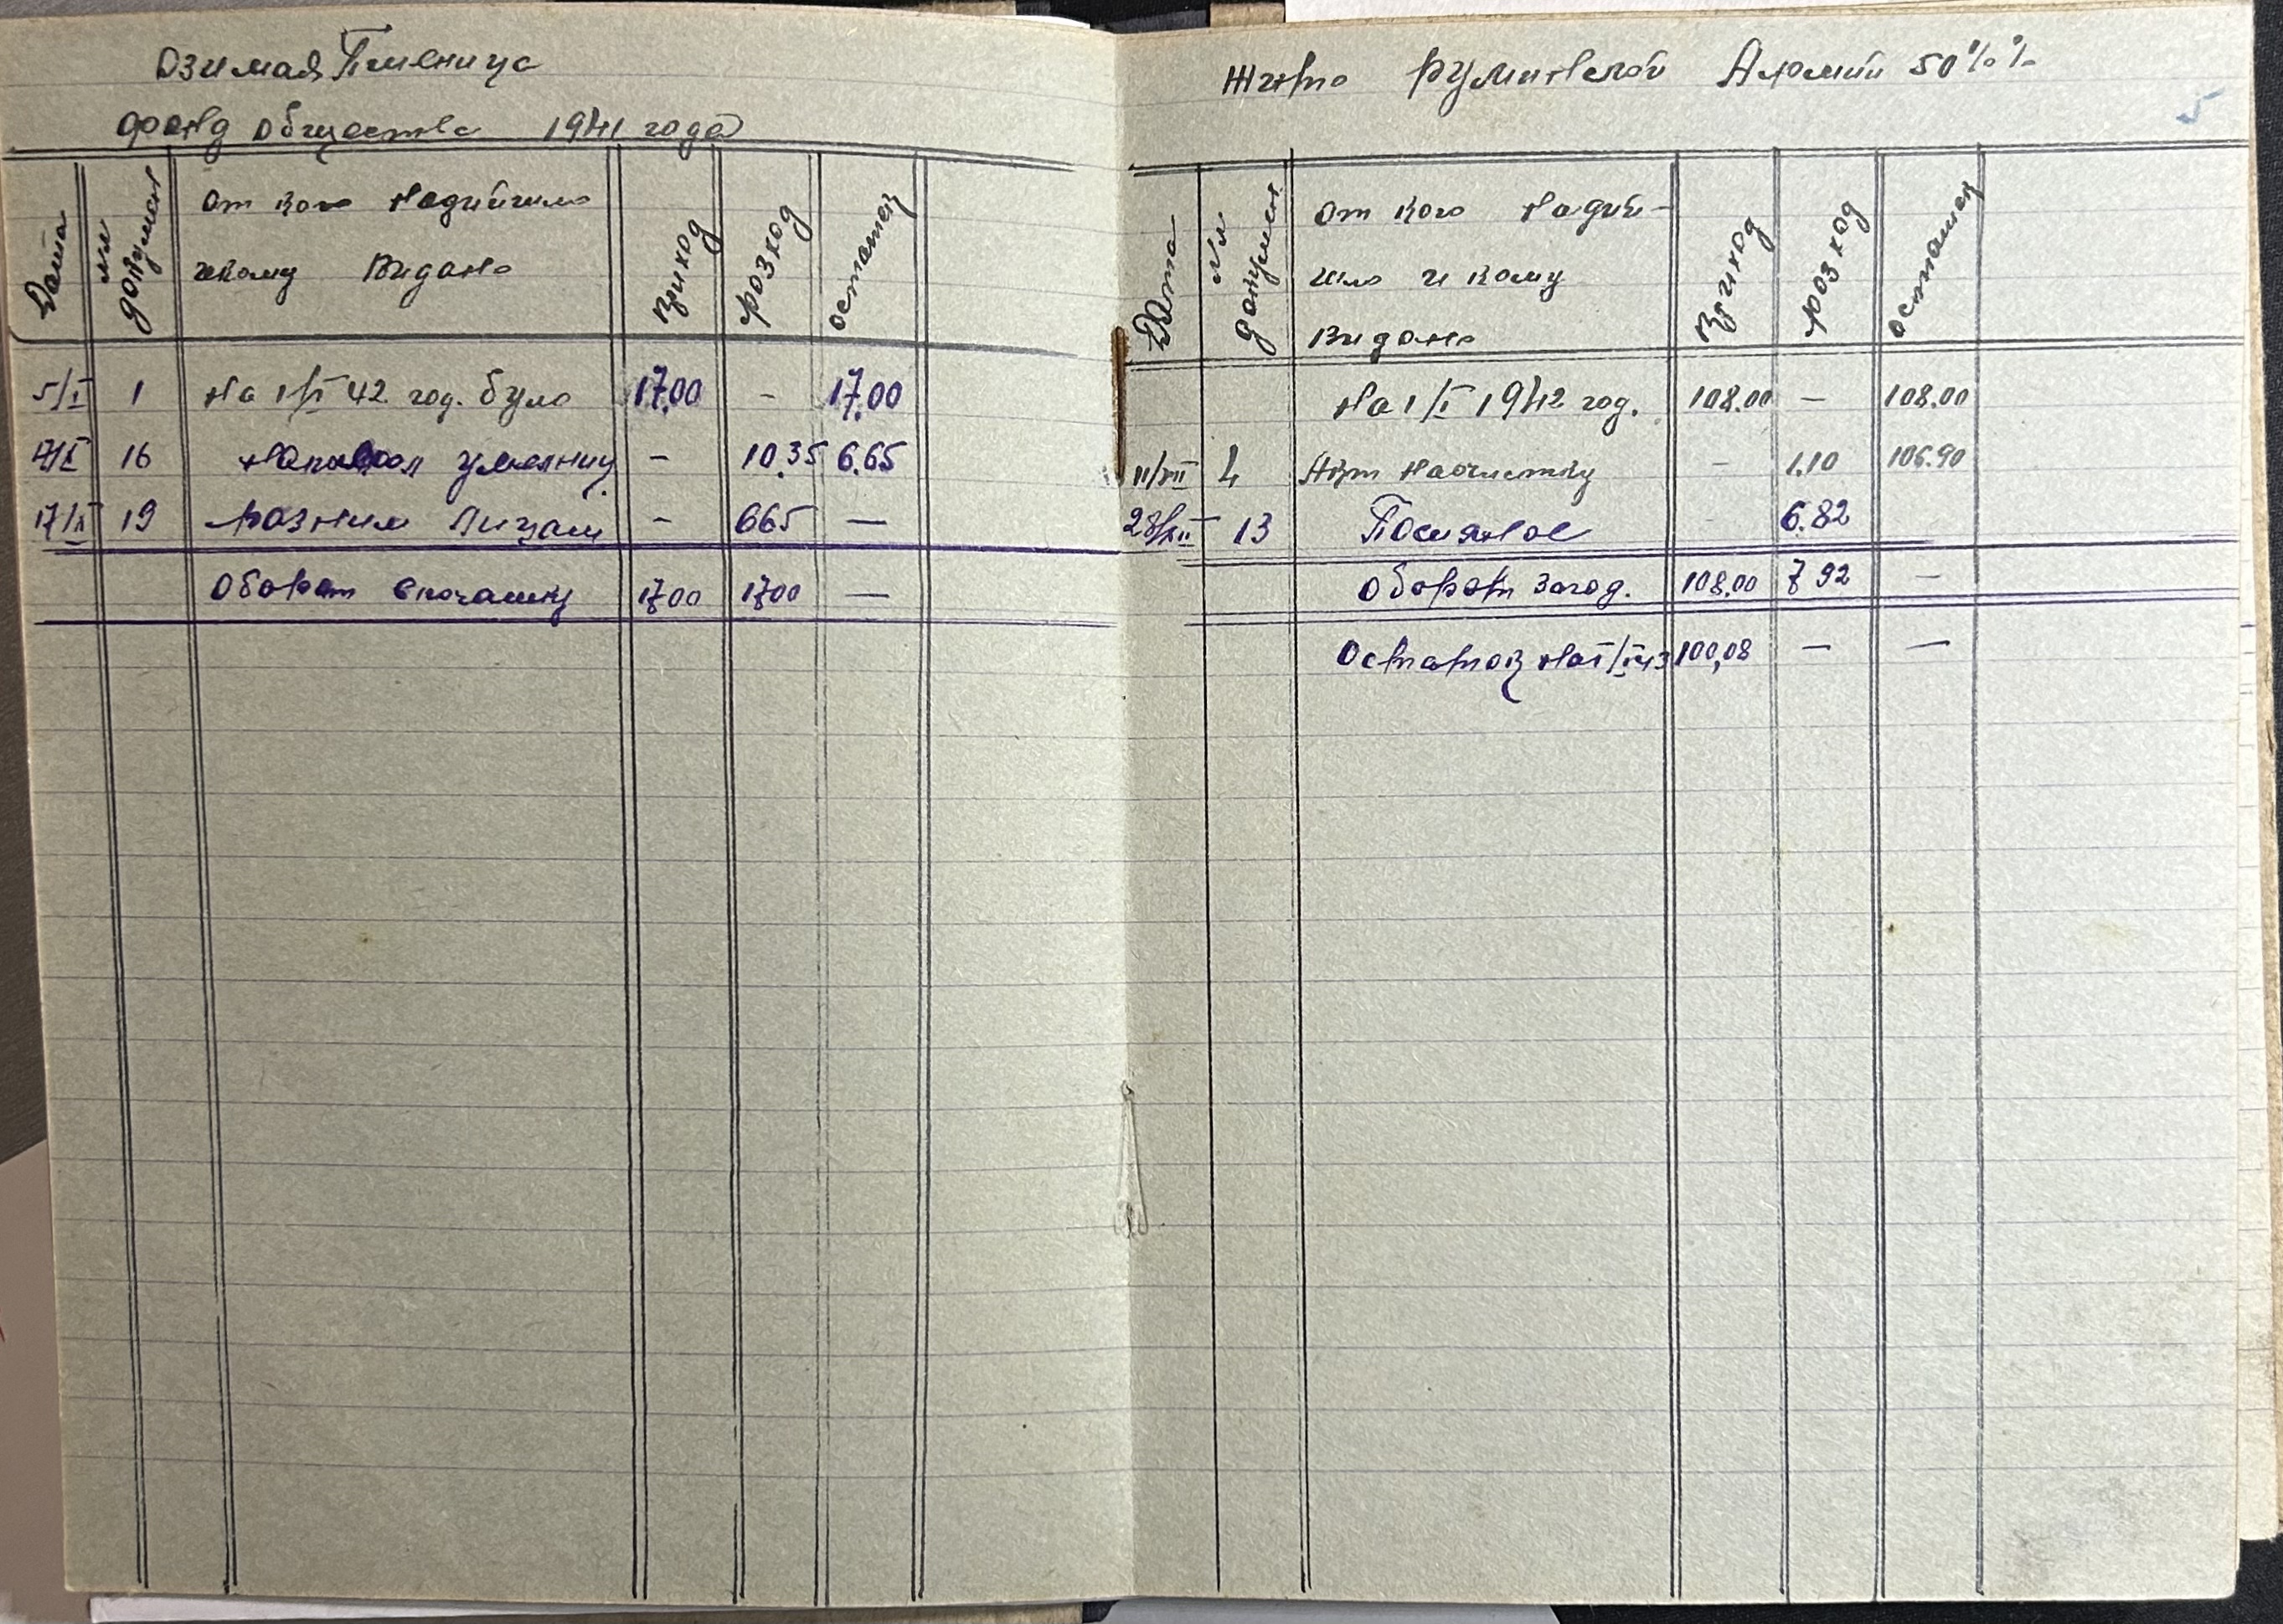 Озимая Пшеница
фонд общества 1941 года
Дата
№№ докумен
от кого надийшло
и кому видано
приход
розход
остаток
5/I 1 На 1/I 42 год. було 17.00 - 17.00
16 - 10.35 6.65
17/IX 19 разним лицам - 665 —
Оборот споначалу 1700 1700 —
Жито румынской Армии 50%%
5
Дата
№№ докумен
от кого надий-
шло и кому
видано
приход
розход
остаток
На 1/I 1942 год. 108.00 — 108.00
11/VII 4 Акт на очистку - 1.10 106.90
28/XII 13 Посияное - 6.82
Оборот за год. 108.00 7 92 —
Остаток на 1/I 43 100,08 — —